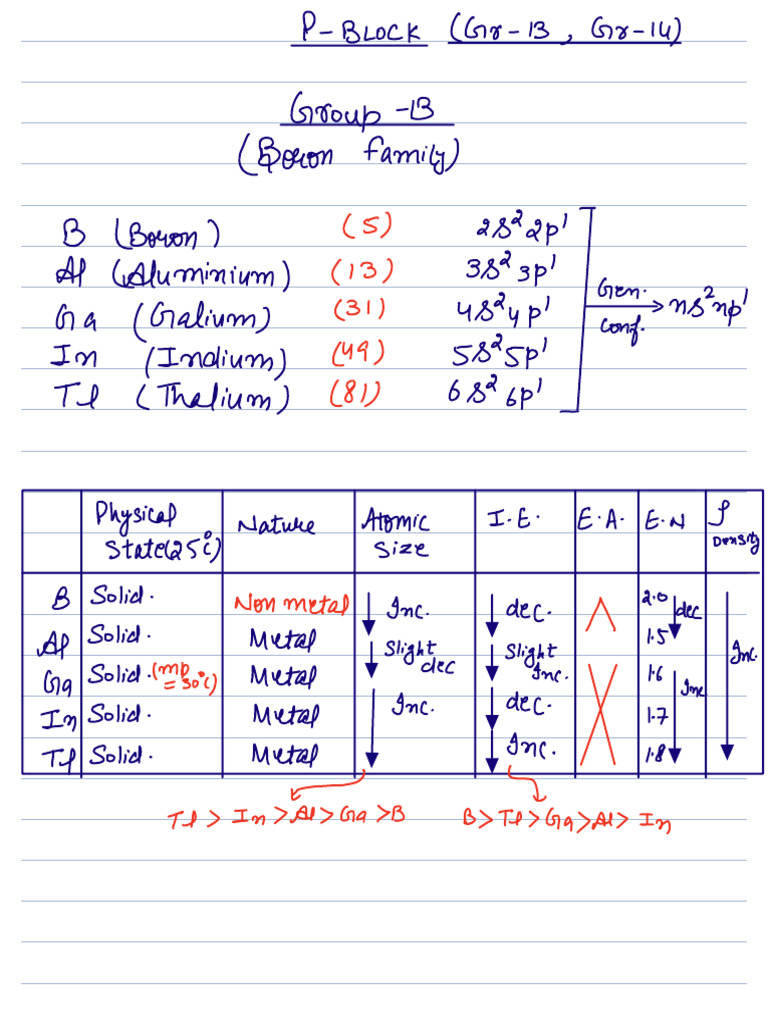 P-BLOCK (Gr-13, Gr-14)
Group-13
(Boron family)
B (Boron) (5) 2s² 2p¹
Al (Aluminium) (13) 3s² 3p¹
Ga (Galium) (31) 4s² 4p¹
In (Indium) (49) 5s² 5p¹
Tl (Thalium) (81) 6s² 6p¹
Gen. Conf. → ns² np¹
Physical State (25°C) Nature Atomic Size I.E. E.A. E.N ρ Density
B Solid. Non metal Inc. dec. 2.0 dec
Al Solid. Metal Slight dec Slight Inc. 1.5 Inc.
Ga Solid. (mp = 30°C) Metal 1.6 Inc
In Solid. Metal Inc. dec. 1.7
Tl Solid. Metal Inc. 1.8
Tl > In > Al > Ga > B B > Tl > Ga > Al > In